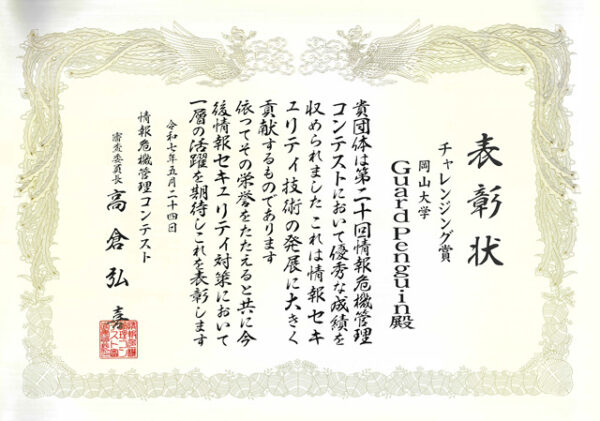 表彰状
チャレンジング賞
岡山大学
GuardPenguin殿
貴団体は第二十回情報危機管理
コンテストにおいて優秀な成績を
収められましたこれは情報セキ
ュリティ技術の発展に大きく
貢献するものであります
依ってその栄誉をたたえると共に今
後情報セキュリティ対策において
一層の活躍を期待しこれを表彰します
令和七年五月二十四日
情報危機管理コンテスト
審査委員長 高倉弘喜